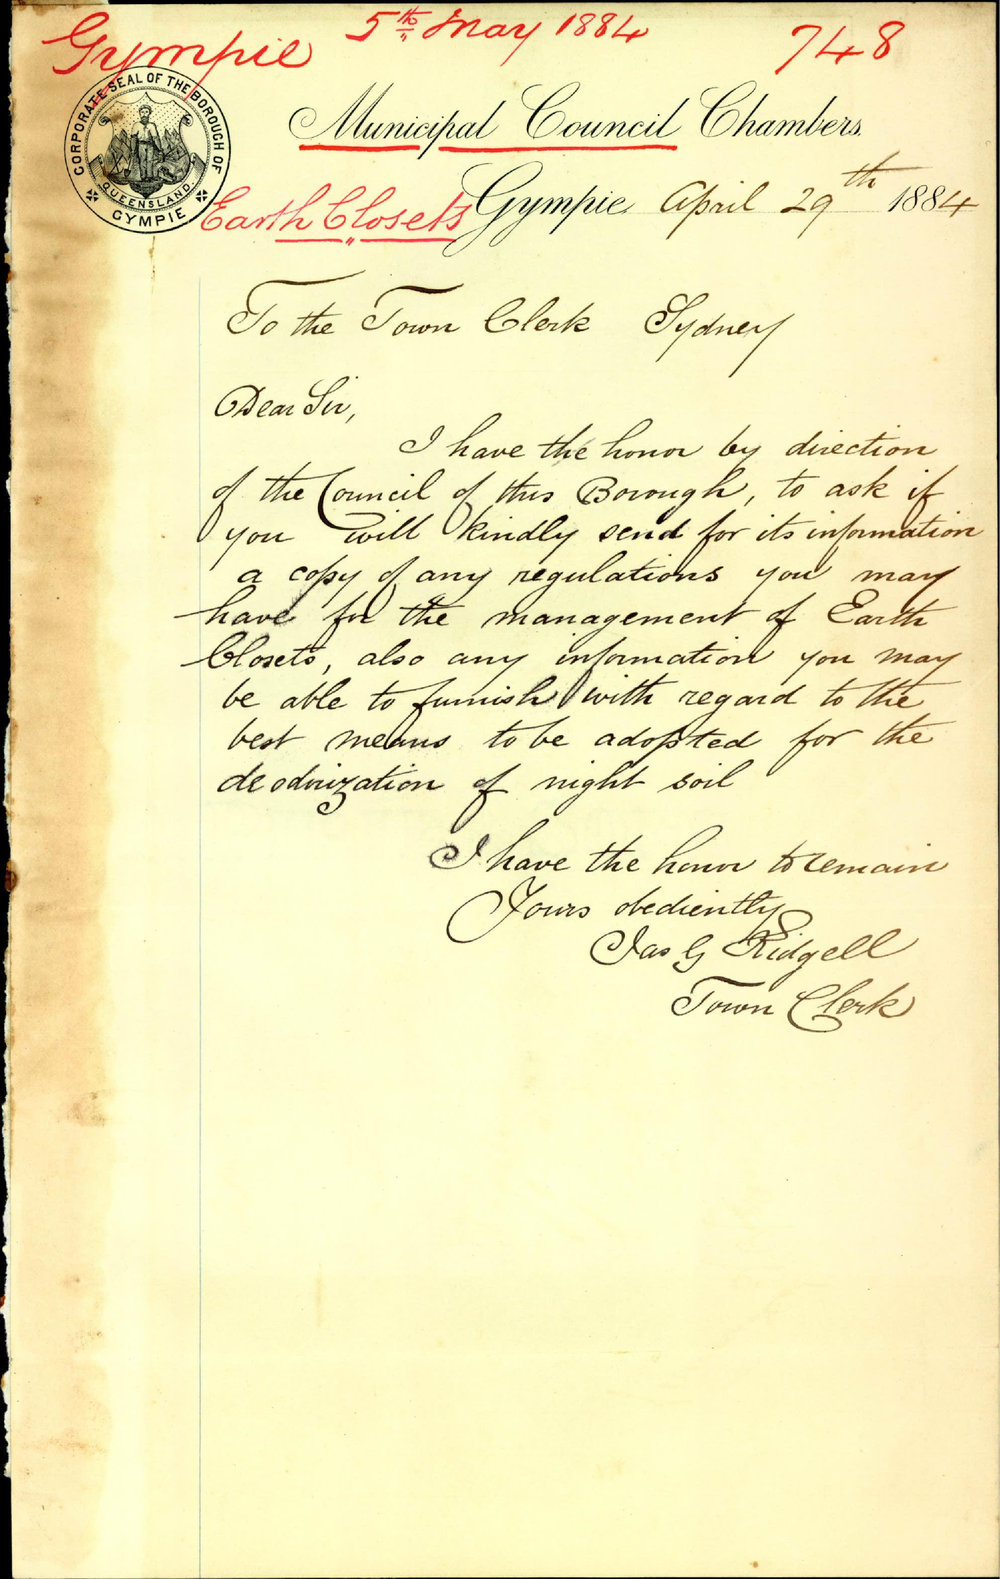 Gympie 5th May 1884 748
CORPORATE SEAL OF THE BOROUGH OF
QUEENSLAND.
GYMPIE
Municipal Council Chambers.
Earth Closets Gympie April 29th 1884
To the Town Clerk Sydney
Dear Sir,
I have the honor by direction
of the Council of this Borough, to ask if
you will kindly send for its information
a copy of any regulations you may
have for the management of Earth
Closets, also any information you may
be able to furnish with regard to the
best means to be adopted for the
deodorization of night soil
I have the honor to remain
Yours obediently
Jas G Kidgell
Town Clerk